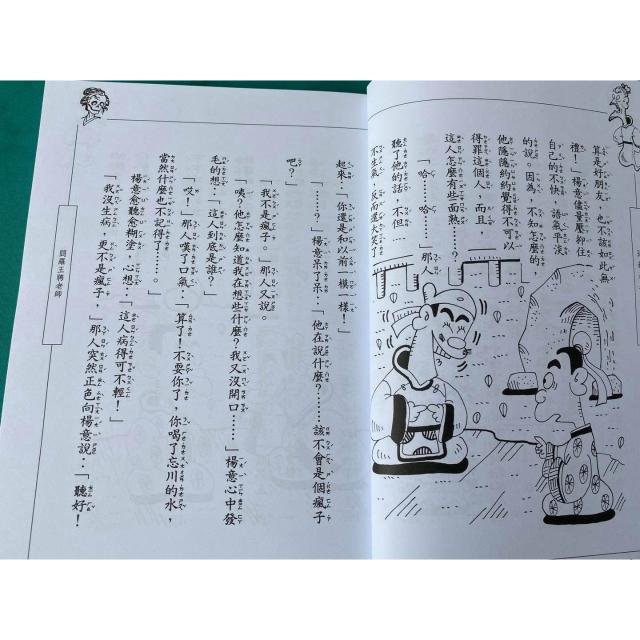 算是好朋友，也不該如此無
禮！」楊意儘量壓抑住
自己的不快，語氣平淡
的說。因為，不知怎麼的
他隱隱約約覺得不可以
得罪這個人，而且……
這人怎麼有些面熟……？
「哈……哈……」那人
聽了他的話，不但
不生氣，反而還大笑了
起來，「你還是和以前一模一樣！」
「……？」楊意呆了呆：「他在說什麼？……該不會是個瘋子
吧？」
「我不是瘋子。」那人又說。
「咦？他怎麼知道我在想些什麼？我又沒開口……」楊意心中發
毛的想：「這人到底是誰？」
「哎！」那人嘆了口氣，「算了！不耍你了，你喝了忘川的水，
當然什麼也不記得了……。」
楊意愈聽愈糊塗，心想：「這人病得可不輕！」
「我沒生病，更不是瘋子。」那人突然正色向楊意說：「聽好！
閻羅王聘老師